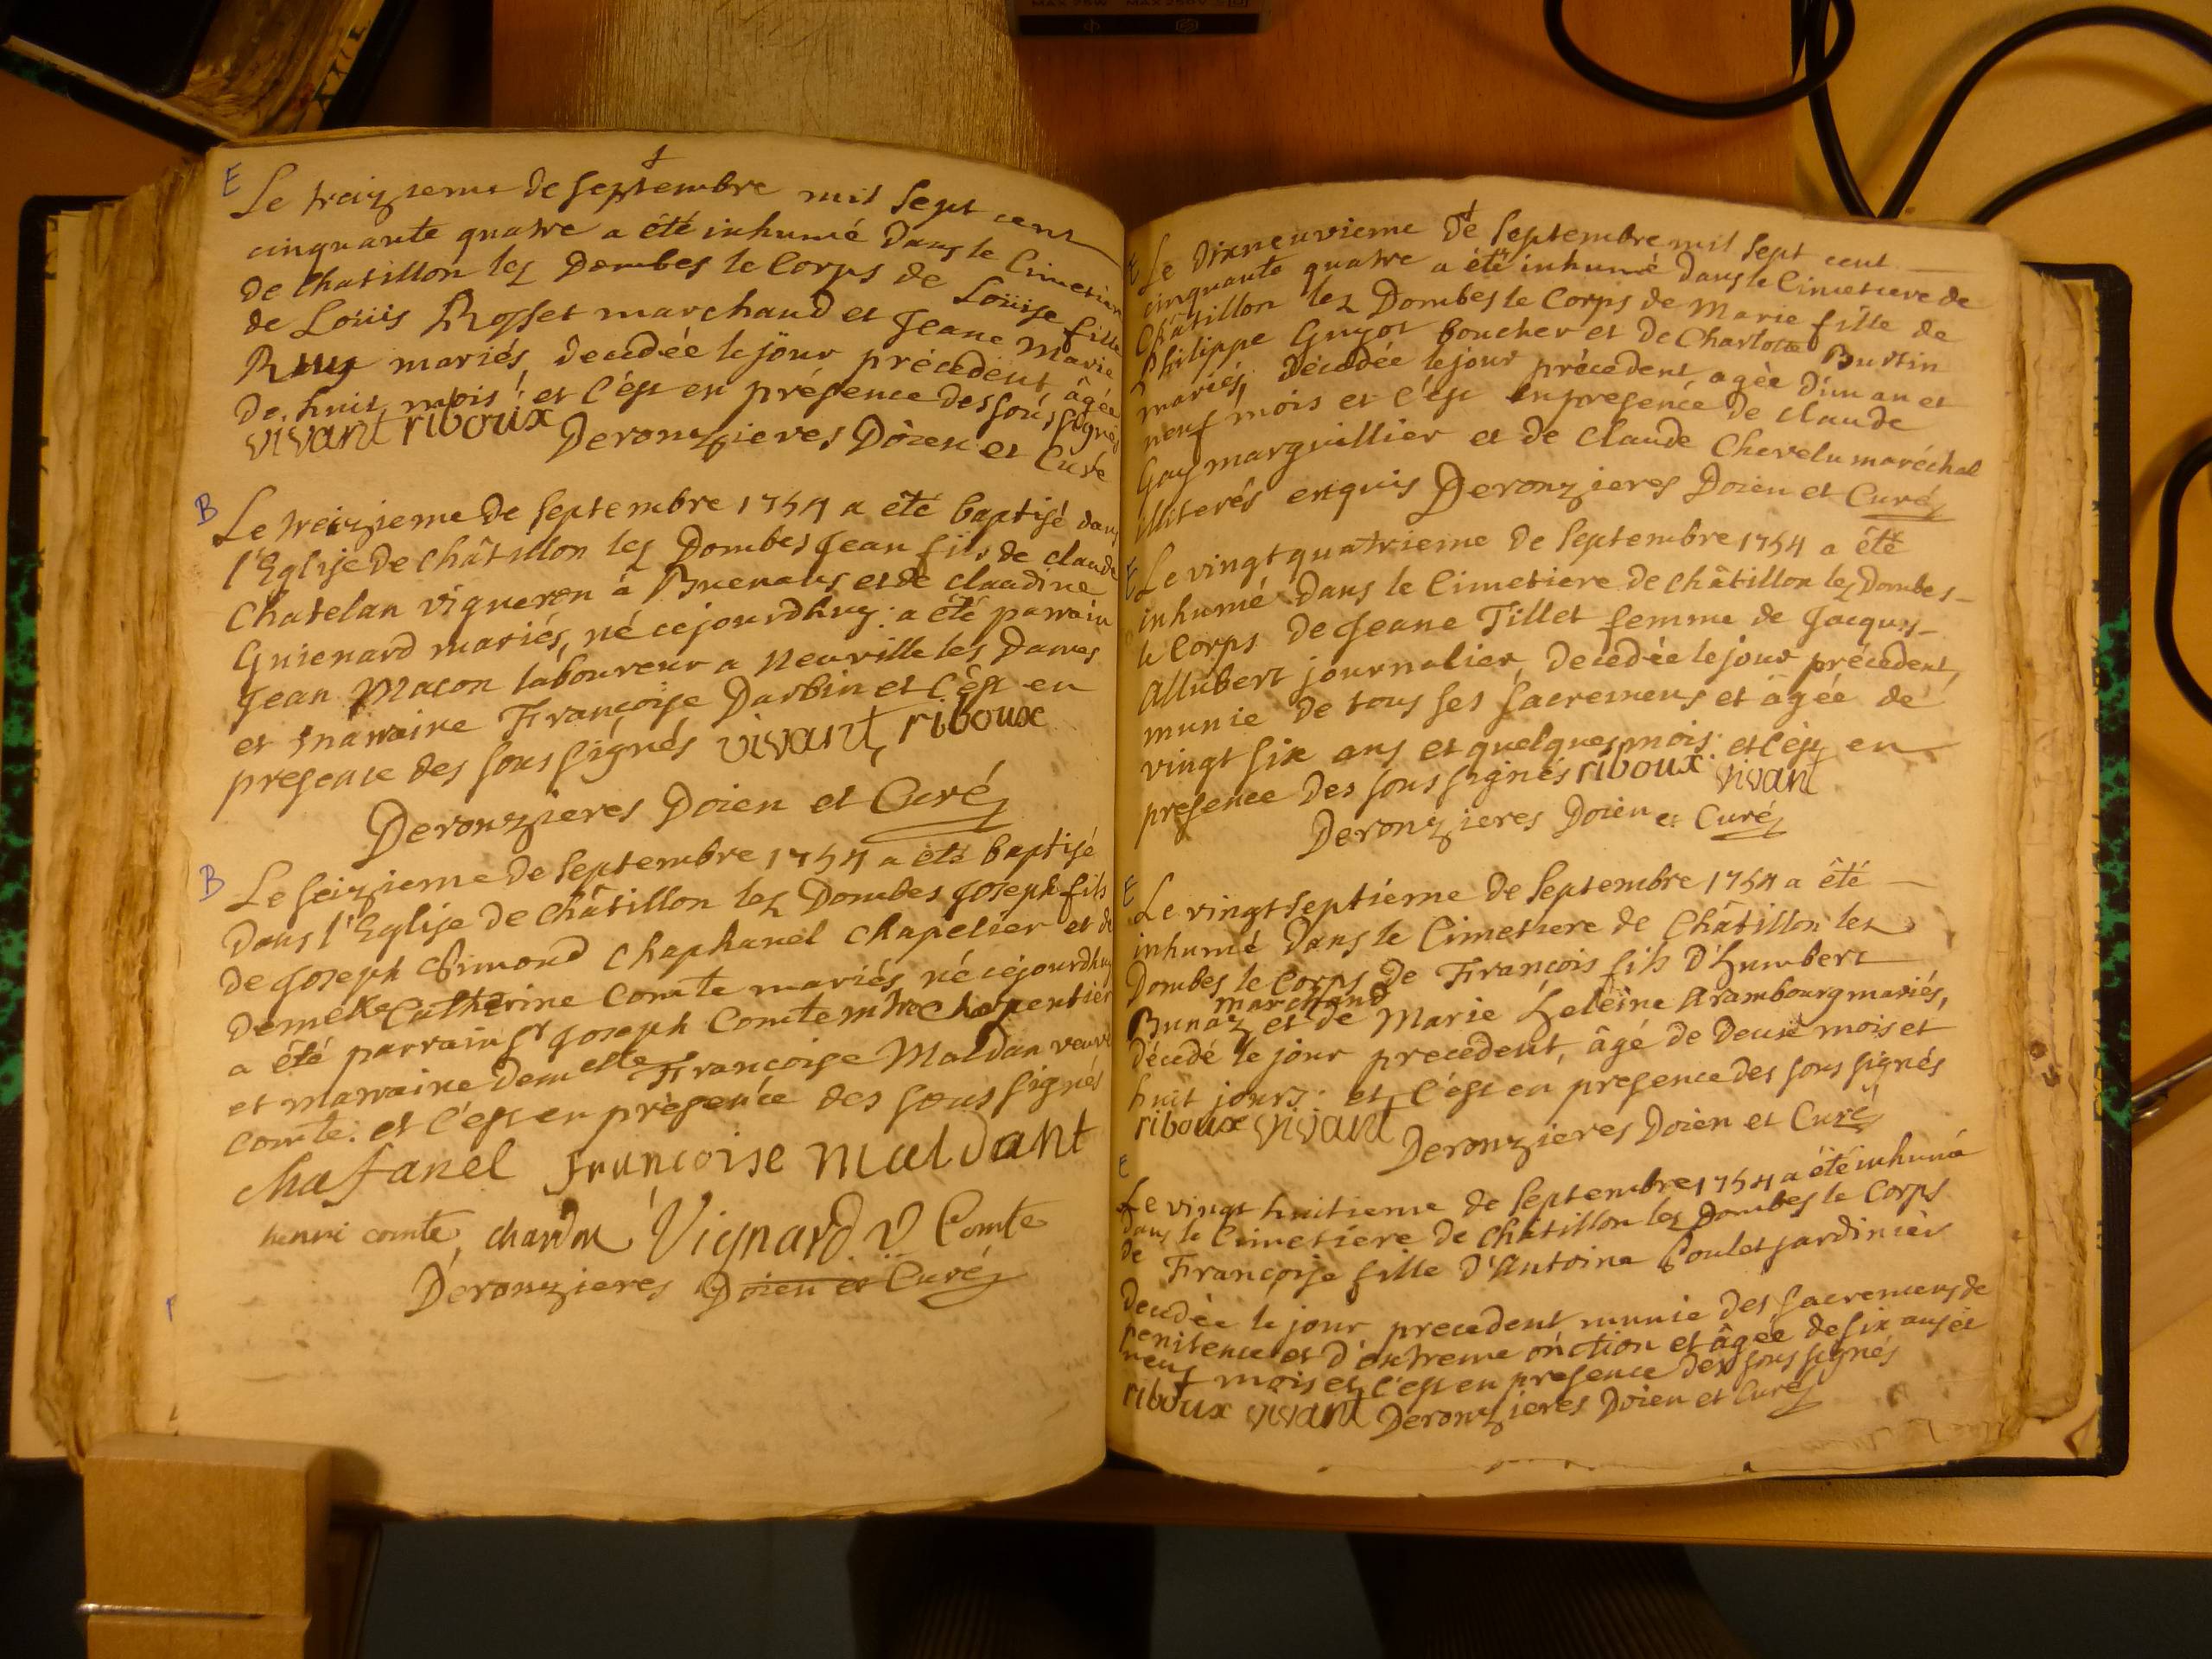 E Le treizieme de septembre mil sept cent
cinquante quatre a été inhumé dans le Cimetiere
de Chatillon lez Dombes le Corps de Loüise fille
de Loüis Rosset marchand et Jeane Marie
mariés, decedée le jour précedent âgée
de huit mois! et c'est en présence des sous signés
vivant riboux Deronzieres Doien et Curé
B Le treizieme de septembre 1754 a été baptisé dans
l'Eglise de châtillon lez Dombes Jean fils de claude
Chatelan vigneron à Buenans et de claudine
Guienard mariés, né cejourdhuy: a été parrain
Jean Macon laboureur a Neuville les Dames
et marraine Françoise Darbin et c'est en
presence des sous signés vivant, riboux
Deronzieres Doien et Curé
B Le seizieme de septembre 1754 a été baptisé
dans l'Eglise de châtillon lez Dombes Joseph fils
de Joseph Simond Chaphanel chapelier et de
demelle Catherine Comte mariés, né cejourdhuy
a été parrain Sr Joseph Comte mtre charpentier
et marraine demelle Françoise Maldan veuve
Comte: et c'est en présence des sous signés
chafanel francoise maldant
henri comte, chardon Vignard D Comte
Deronzieres Doien et Curé
E Le dixneuvieme de septembre mil sept cent
cinquante quatre a été inhumé dans le Cimetiere de
Châtillon lez Dombes le Corps de Marie fille de
Philippe Guyot boucher et de Charlotte Burtin
mariés, décédée le jour précedent agée d'un an et
neuf mois et c'est en presence de claude
Gay marguillier et de claude Chevelu maréchal
illiterés enquis Deronzieres Doien et Curé
E Le vingt quatrieme de septembre 1754 a été
inhumé dans le Cimetiere de châtillon lez Dombes
le Corps de Jeane Tillet femme de Jacques
Allubert journalier, decedée le jour précedent,
munie de tous ses sacremens et âgée de
vingt six ans et quelques mois: et c'est en
presence des sous signés riboux vivant
Deronzieres Doien et Curé
E Le vingt septiéme de septembre 1754 a été
inhumé dans le Cimetiere de Châtillon lez
Dombes le Corps de François fils d'humbert
marchand
Bunaz et de Marie heleine Arambourg mariés,
décedé le jour precedent, âgé de deux mois et
huit jours: et c'est en presence des sous signés
riboux vivant Deronzieres Doien et Curé
E
Le vingt huitieme de septembre 1754 a été inhumé
dans le Cimetiere de châtillon lez Dombes le Corps
de Françoise fille d'Antoine Poulet jardinier
decedée le jour precedent munie des sacremens de
penitence et d'extreme onction et âgée de six ans et
neuf mois et c'est en presence des sous signés
riboux vivant Deronzieres Doien et Curé